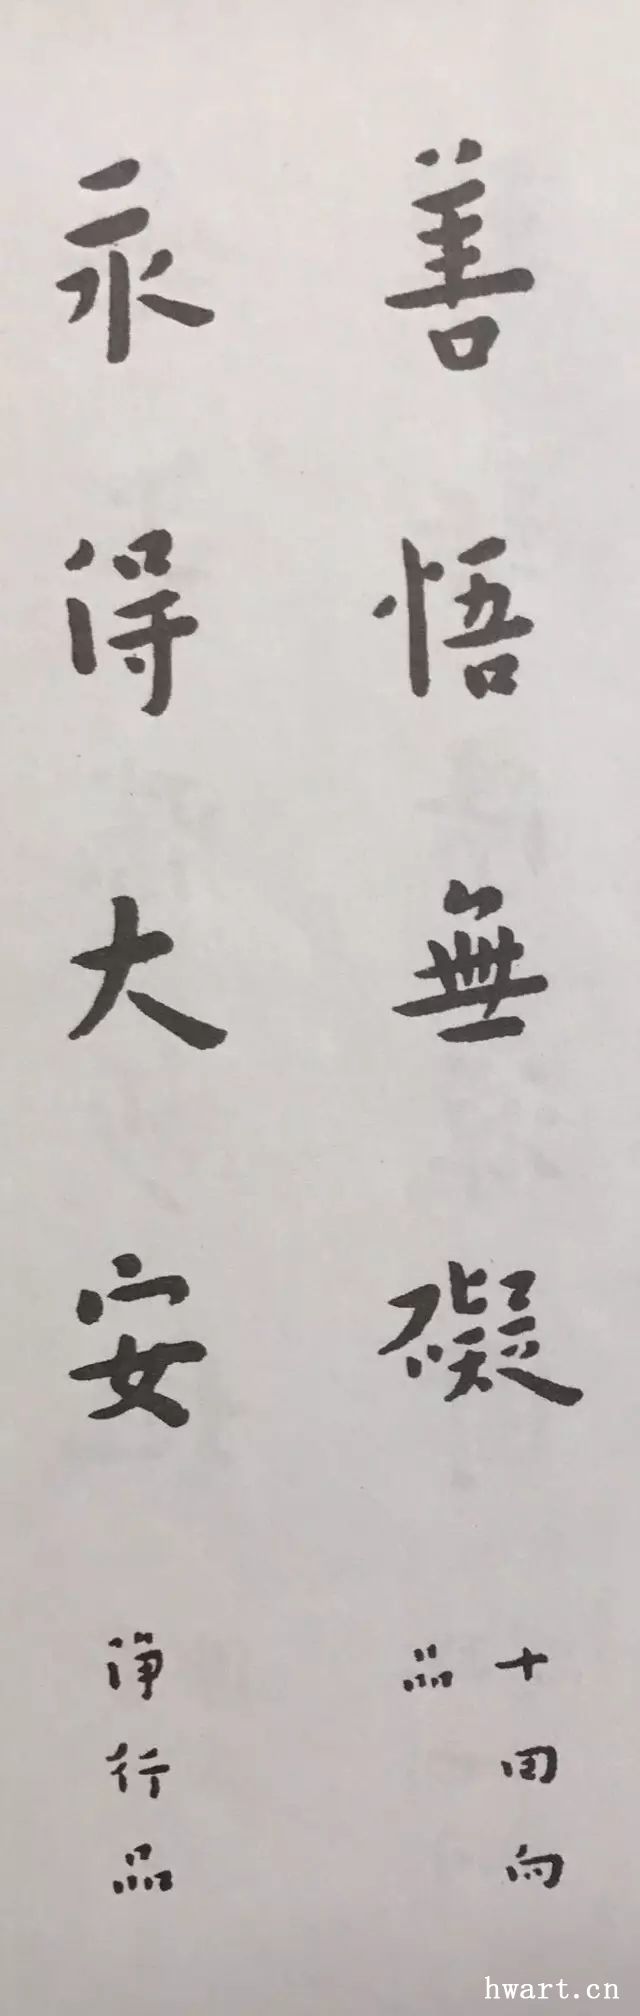 善悟無礙
十回向
品
永得大安
淨行品
hwart.cn